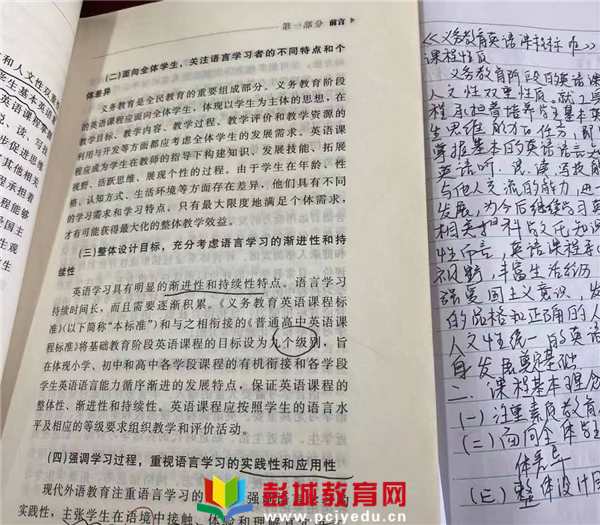 第一部分 前言
(二)面向全体学生,关注语言学习者的不同特点和个
体差异
义务教育是全民教育的重要组成部分。义务教育阶段
的英语课程应面向全体学生,体现以学生为主体的思想,在
教学目标、教学内容、教学过程、教学评价和教学资源的
利用与开发等方面都应考虑全体学生的发展需求。英语课
程应成为学生在教师的指导下构建知识、发展技能、拓展
视野、活跃思维、展现个性的过程。由于学生在年龄、性
格、认知方式、生活环境等方面存在差异,他们具有不同
的学习需求和学习特点。只有最大限度地满足个体需求,
才有可能获得最大化的整体教学效益。
(三)整体设计目标,充分考虑语言学习的渐进性和持
续性
英语学习具有明显的渐进性和持续性特点。语言学习
持续时间长,而且需要逐渐积累。《义务教育英语课程标
准》(以下简称“本标准”)和与之相衔接的《普通高中英语课
程标准》将基础教育阶段英语课程的目标设为九个级别,旨
在体现小学、初中和高中各学段课程的有机衔接和各学段
学生英语语言能力循序渐进的发展特点,保证英语课程的
整体性、渐进性和持续性。英语课程应按照学生的语言水
平及相应的等级要求组织教学和评价活动。
(四)强调学习过程,重视语言学习的实践性和应用性
现代外语教育注重语言学习的
实践性,主张学生在语境中接触、体验和理解
和人文性双重
英语课
说、读、写
步促进思
其他相关
程承担着
程能够
学生观
《义务教育英语课程标准》
课程性质
义务教育阶段的英语课
人文性双重性质。就工具
程承担着培养学生基本英
生思维能力的任务,即
掌握基本的英语语言
英语听、说、读、写技能
与他人交流的能力,进一
发展,为今后继续学习英
相关科学文化知识
性而言,英语课程承
视野,丰富生活经历
强爱国主义意识,发
的品格和正确的人
人文性统一的英语
身发展奠基础
二、课程基本理念
(一)注重素质教育
(二)面向全体学
体差异
(三)整体设计目
彭城教育网
www.pcjyedu.cn